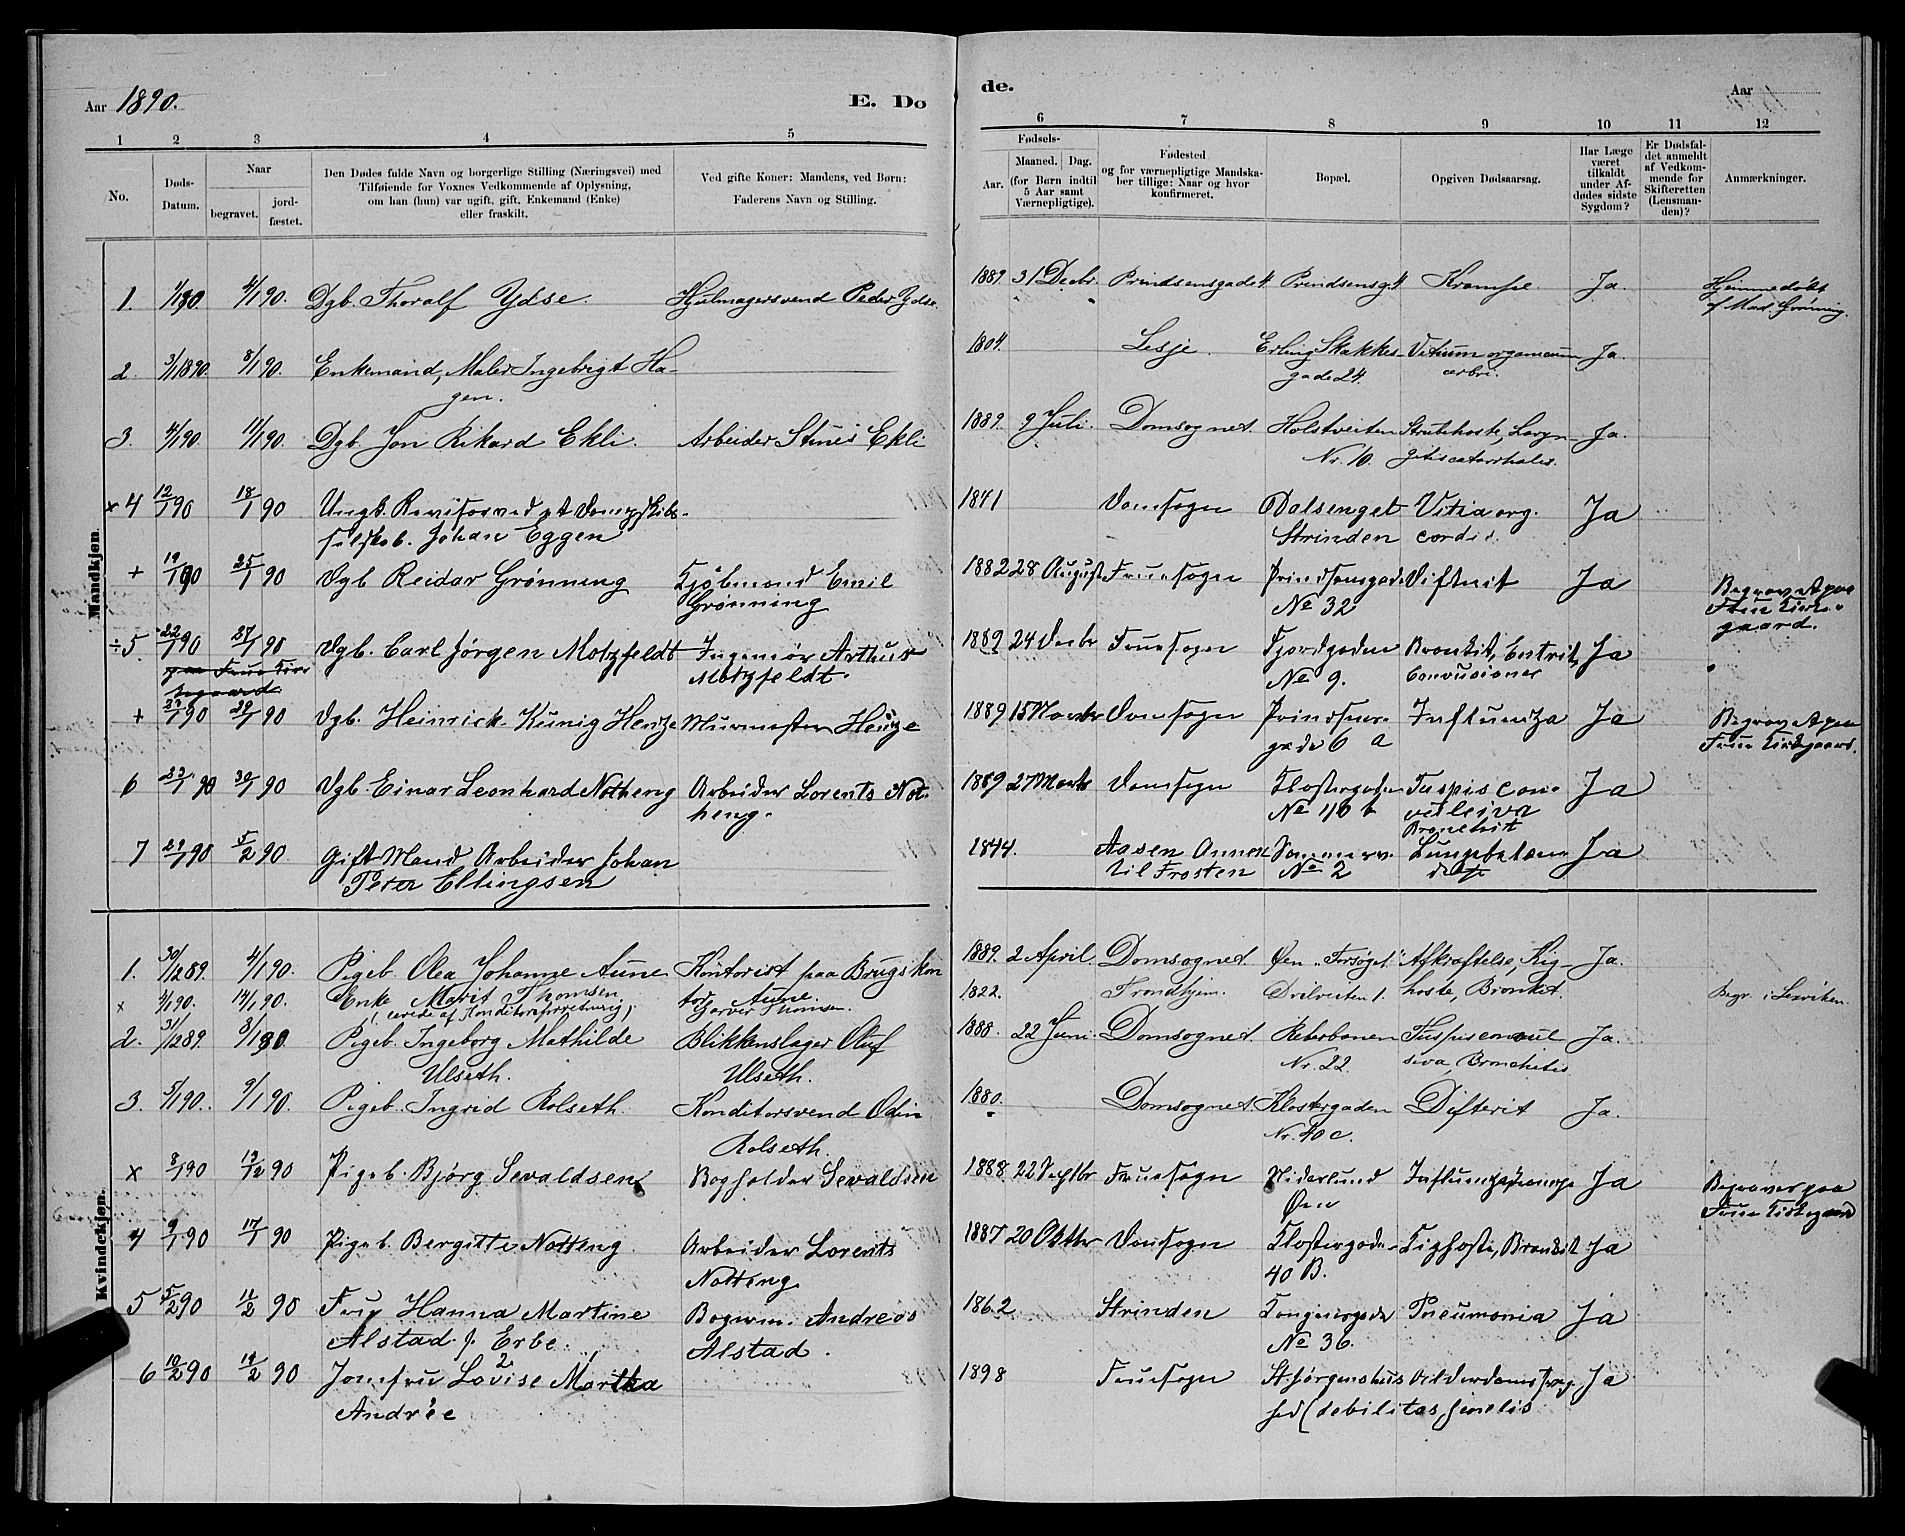 Aar 1890.
E. Dø
de.
Aar
1 2 3 4 5
6 7 8 9 10 11 12
No.
Døds-
Datum.
Naar
begravet.
jord-
fæstet.
Den Dødes fulde Navn og borgerlige Stilling (Næringsvei) med
Tilføiende for Voxnes Vedkommende af Oplysning,
om han (hun) var ugift, gift, Enkemand (Enke)
eller fraskilt.
Ved gifte Koner: Mandens, ved Børn:
Faderens Navn og Stilling.
Fødsels-
Aar.
Maaned. Dag.
(for Børn indtil
5 Aar samt
Værnepligtige).
Fødested
og for værnepligtige Mandska-
ber tillige: Naar og hvor
konfirmeret.
Bopæl.
Opgiven Dødsaarsag.
Har Læge
været
tilkaldt
under Af-
dødes sidste
Sygdom?
Er Dødsfal-
det anmeldt
af Vedkom-
mende for
Skifteretten
(Lensman-
den)?
Anmærkninger.
Mandkjøn.
1. 1/1 90. 4/1 90. Dgb. Thoralf Ydse. Hjulmagersvend Peder Ydse. 1889. 31 Decbr. Prindsensgade 4 Prindsensg. 4 Krampe. Ja. Hjemmedøbt
af Mad. Grønning.
2. 3/1 1890. 8/1 90. Enkemand, Maler Ingebrigt Ha-
gen. 1804. Lesje. Erling Skakkes-
gade 24. Vitium organicum
cerbri. Ja.
3. 4/1 90. 11/1 90. Dgb. Jon Rikard Ekli. Arbeider Ekli 1889. 9 Juli. Domsognet. Holstveiten
Nr. 10. Strubehoste, Laryn-
gitis catarrhales. Ja.
x 4 12/1 90 18/1 90 Ungk. Revisor ved
Johan Eggen 1841 Domsogn Dalsenget
Strinden Vitia org.
cordis. Ja
+ 19/1 90 25/1 90 Dgb Reidar Grønning Kjøbmand Emil
Grønning 1882 28 August Fruesogn Prindsensgade
No 32 Difterit Ja Begravet paa
Frue Kirke-
gaard.
÷ 5 22/1 90 27/1 90 Dgb. Carl Jørgen Motzfeldt Ingeniør Arthur
Motzfeldt. 1889 24 Decbr Fruesogn Fjordgaden
No 9. Bronkit, Entrit,
Convusioner Ja
paa Frue Kir-
kegaard
+ 90 29/1 90 Dgb. Heinrick Künig Henze Murmester Henze 1889 15 Domsogn Prindsens-
gade 6 a Influenza Ja Begravet paa
Frue Kirkegaard.
6 23/1 90 30/1 90 Dgb. Einar Leonhard Notheng Arbeider Lorents Not-
heng. 1889 27 Domsogn Klostergaden
No 40 b Tuspis con-
vulsiva
Bronchit Ja
7 29/1 90 5/2 90 Gift Mand Arbeider Johan
Peter Ellingsen 1844. Aasen Annex
til Frosten
No 2 Lungebetæn-
delse Ja
Kvindekjøn.
1. 30/12 89. 4/1 90. Pigeb. Olea Johanne Aune Kontorist paa Brugskon
tor Aune. 1889. 2 April Domsognet Øen "Forsøget" Afkræftelse, Kig-
hoste, Bronkit. Ja.
x 9/1 90. 14/1 90. Enke Marit Thomsen
Garver Thomsen. 1822. Trondhjem. Drilveiten 1. Begr. i Lexviken.
2. 31/12 89. 8/1 90. Pigeb. Ingeborg Mathilde
Ulseth. Blikkenslager Oluf
Ulseth. 1888. 22 Juni. Domsognet. Reberbanen
Nr. 22. Tuspis convul
siva, Bronchitis Ja.
3. 5/1 90. 9/1 90. Pigeb. Ingrid Rolseth. Konditorsvend Odin
Rolseth. 1880. Domsognet Klostergaden
Nr. 40 c. Difterit Ja.
x 8/1 90 90 Pigeb. Bjørg Sevaldsen Bogholder Sevaldsen 1888 22 Septbr Fruesogn
Øen Ja Begraves paa
Frue Kirkegaard
4 9/1 90 17/1 90 Pigeb. Bergitte Notteng Arbeider Lorents
Notteng 1887 20 Oktbr Domsogn Klostergaden
40 B. Kighoste, Bronkit Ja
5 5/2 90 11/2 90 Frue Hanna Martine
Alstad f. Erbe. Bogerm. Andreas
Alstad. 1862 Strinden Kongensgade
No 36. Pneumonia Ja
6 10/2 90 14/2 90 Jomfru Lovise Martha
Andrée 1898 Fruesogn St. Jørgenshus Alderdomssvag-
hed (debilitas senelis Ja